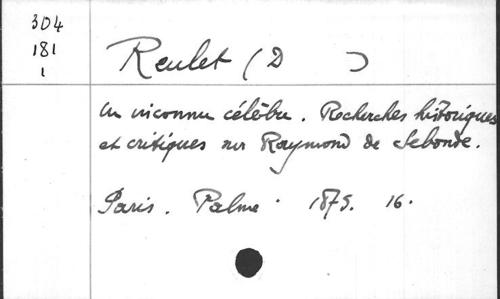 304
181
1
Reulet (D )
Un inconnu célèbre. Recherches historiques
et critiques sur Raymond de Sebonde.
Paris. Palmé 1875. 16.